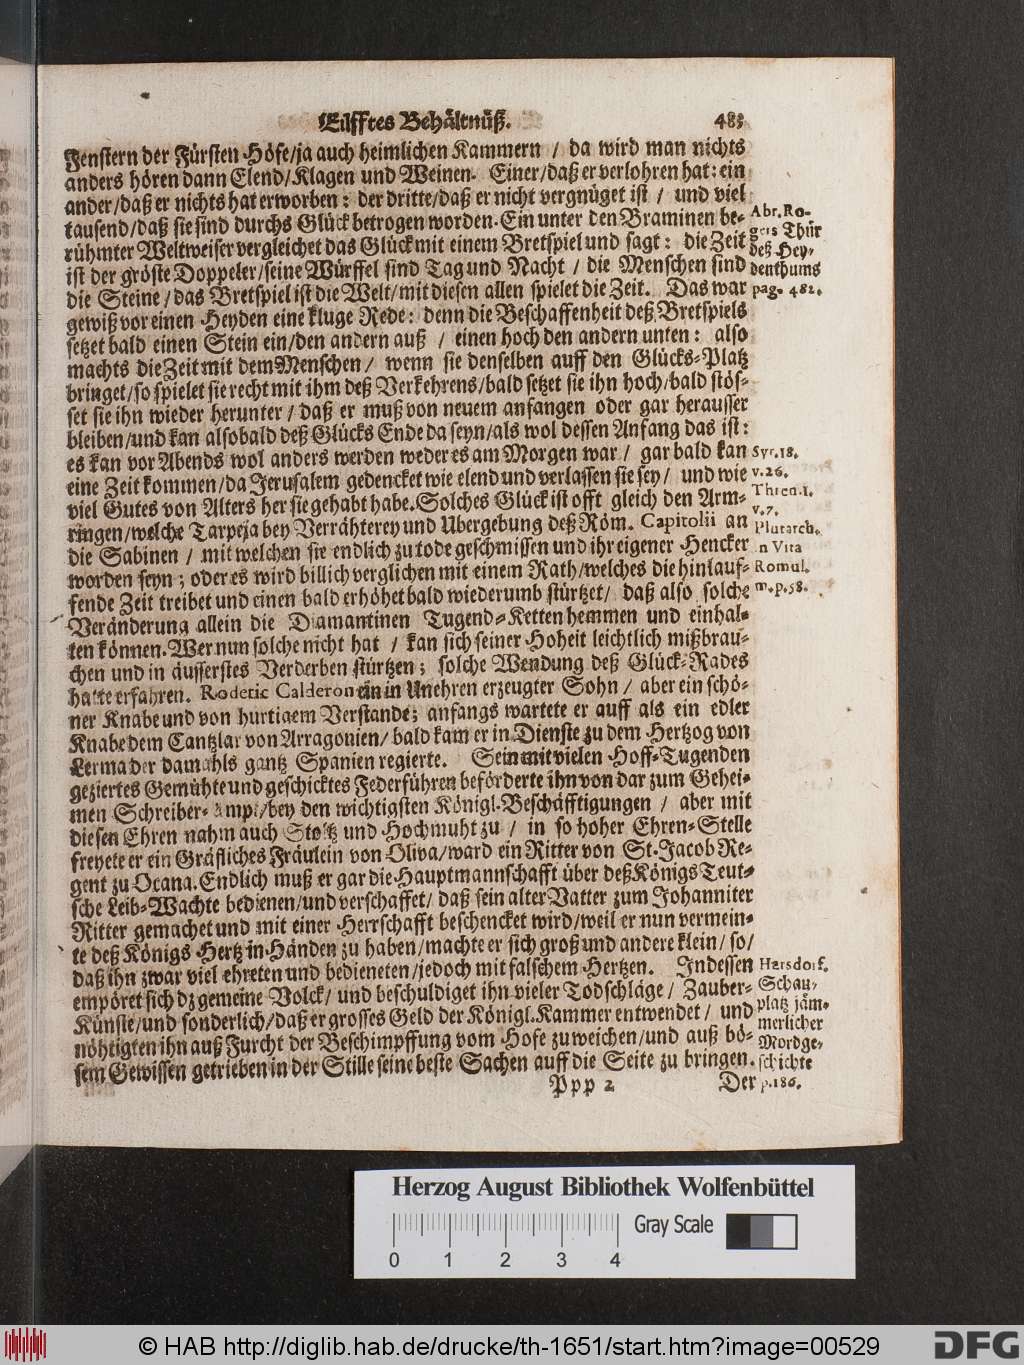 Eilfftes Behältnüß. 483
Fenstern der Fürsten Höfe/ja auch heimlichen Kammern / da wird man nichts
anders hören dann Elend/Klagen und Weinen. Einer/daß er verlohren hat: ein
ander/daß er nichts hat erworben: der dritte/daß er nicht vergnüget ist / und viel
tausend/daß sie sind durchs Glück betrogen worden. Ein unter den Braminen be-
rühmter Weltweiser vergleichet das Glück mit einem Bretspiel und sagt: die Zeit
ist der gröste Doppeler/seine Würffel sind Tag und Nacht / die Menschen sind
die Steine/das Bretspiel ist die Welt/mit diesen allen spielet die Zeit. Das war
gewiß vor einen Heyden eine kluge Rede: denn die Beschaffenheit deß Bretspiels
setzet bald einen Stein ein/den andern auß / einen hoch den andern unten: also
machts die Zeit mit dem Menschen/ wenn sie denselben auff den Glücks-Platz
bringet/so spielet sie recht mit ihm deß Verkehrens/bald setzet sie ihn hoch/bald stös-
set sie ihn wieder herunter/ daß er muß von neuem anfangen oder gar herausser
bleiben/und kan alsobald deß Glücks Ende da seyn/als wol dessen Anfang das ist:
es kan vor Abends wol anders werden weder es am Morgen war/ gar bald kan
eine Zeit kommen/da Jerusalem gedencket wie elend und verlassen sie sey/ und wie
viel Gutes von Alters her sie gehabt habe. Solches Glück ist offt gleich den Arm-
ringen/welche Tarpeja bey Verrähterey und Ubergebung deß Röm. Capitolii an
die Sabinen / mit welchen sie endlich zu tode geschmissen und ihr eigener Hencker
worden seyn; oder es wird billich verglichen mit einem Rath/welches die hinlauf-
fende Zeit treibet und einen bald erhöhet bald wiederumb stürtzet/ daß also solche
Veränderung allein die Diamantinen Tugend-Ketten hemmen und einhal-
ten können. Wer nun solche nicht hat / kan sich seiner Hoheit leichtlich mißbrau-
chen und in äusserstes Verderben stürtzen; solche Wendung deß Glück-Rades
hatte erfahren. Roderic Calderon ein in Unehren erzeugter Sohn/ aber ein schö-
ner Knabe und von hurtigem Verstande; anfangs wartete er auff als ein edler
Knabe dem Cantzlar von Arragonien/ bald kam er in Dienste zu dem Hertzog von
Lerma der damahls gantz Spanien regierte. Sein mit vielen Hoff-Tugenden
geziertes Gemühte und geschicktes Federführen beförderte ihn von dar zum Gehei-
men Schreiber-Ampt/bey den wichtigsten Königl. Beschäfftigungen / aber mit
diesen Ehren nahm auch Stoltz und Hochmuht zu / in so hoher Ehren-Stelle
freyete er ein Gräfliches Fräulein von Oliva/ward ein Ritter von St. Jacob Re-
gent zu Ocana. Endlich muß er gar die Hauptmannschafft über deß Königs Teut-
sche Leib-Wachte bedienen/und verschaffet/ daß sein alter Vatter zum Johanniter
Ritter gemachet und mit einer Herrschafft beschencket wird/weil er nun vermein-
te deß Königs Hertz in Händen zu haben/machte er sich groß und andere klein/ so/
daß ihn zwar viel ehreten und bedieneten/jedoch mit falschem Hertzen. Indessen
empöret sich dz gemeine Volck/ und beschuldiget ihn vieler Todschläge/ Zauber-
Künste/und sonderlich/daß er grosses Geld der Königl. Kammer entwendet/ und
nöhtigten ihn auß Furcht der Beschimpffung vom Hofe zu weichen/und auß bö-
sem Gewissen getrieben in der Stille seine beste Sachen auff die Seite zu bringen.
Ppp 2 Der
Abr. Ro-
gers Thür
deß Hey-
denthums
pag. 482.
Syr. 18.
v. 26.
Thren. 1.
v. 7.
Plutarch.
in Vita
Romul.
m. p. 58.
Harsdorf.
Schau-
platz jäm-
merlicher
Mordge-
schichte
p. 186.
Herzog August Bibliothek Wolfenbüttel
Gray Scale
0 1 2 3 4
© HAB http://diglib.hab.de/drucke/th-1651/start.htm?image=00529
DFG